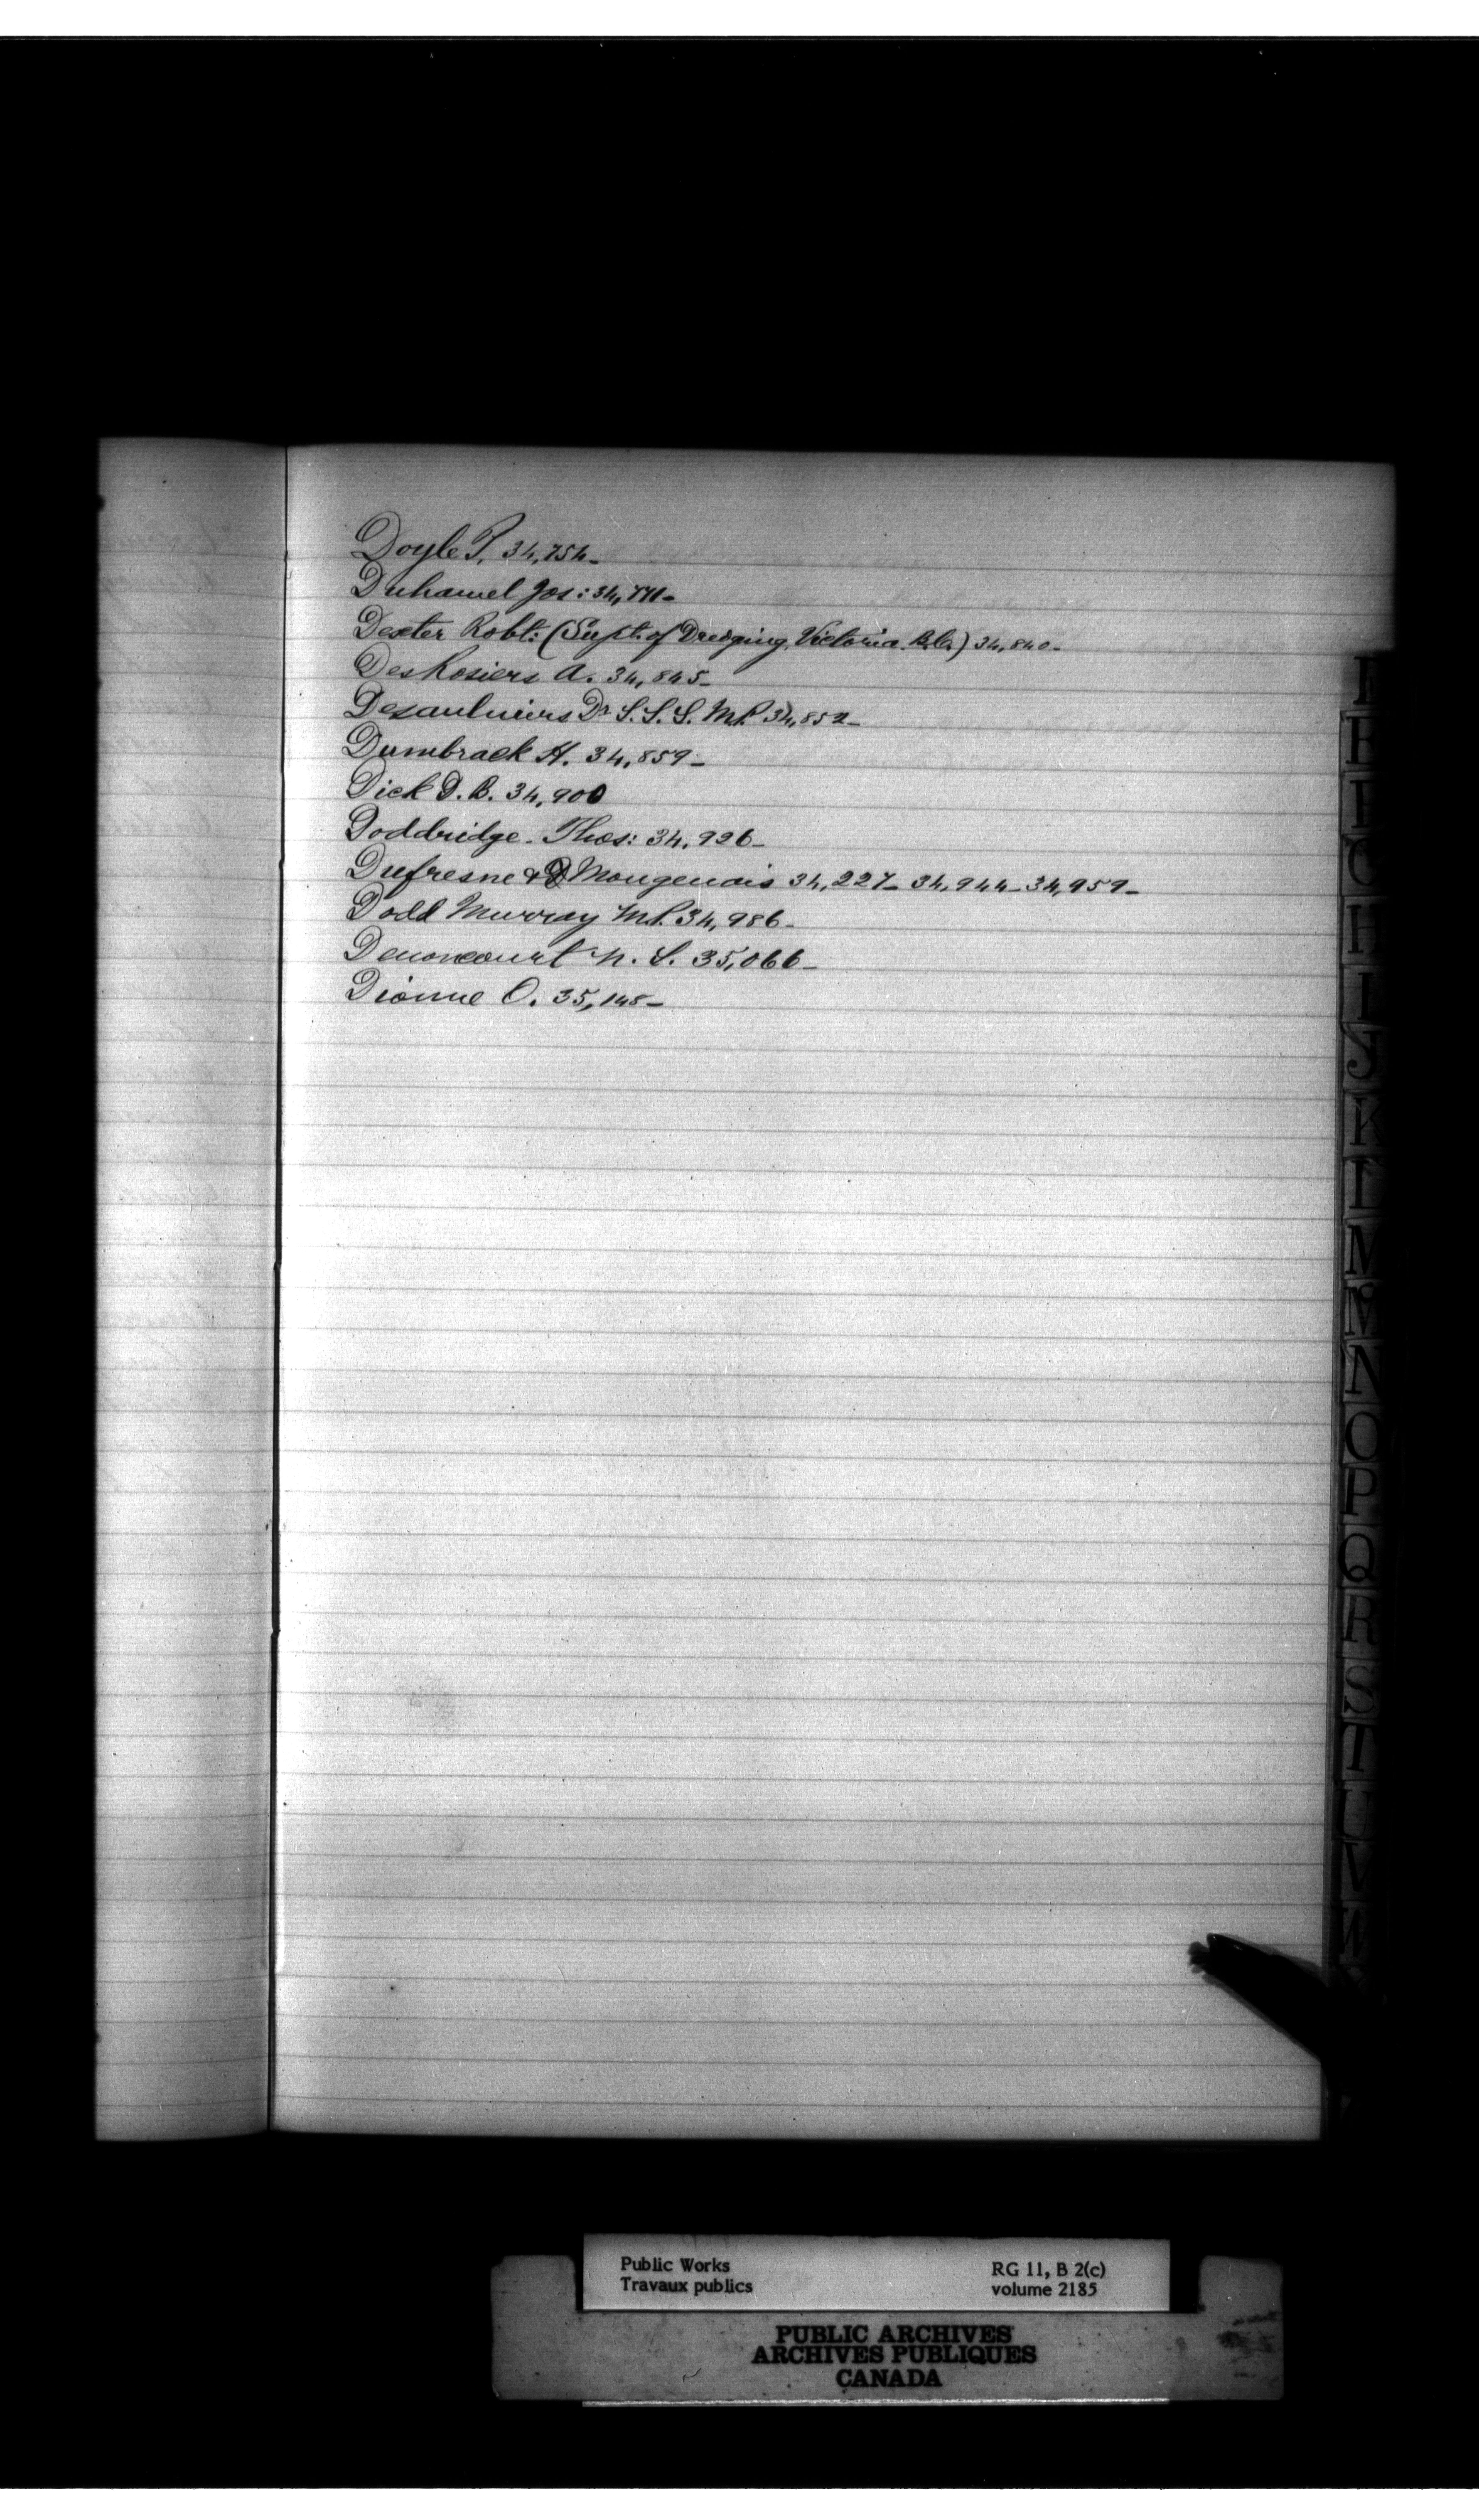 Doyle P. 34,754-
Duhamel Jos: 34,771-
Dexter Robt: (Supt. of Dredging, Victoria. B.C.) 34,840-
DesRosiers A. 34,845-
Desaulniers Dr S. S. S. M.P. 34,852-
Dumbrack H. 34,859-
Dick D. B. 34,900
Doddridge - Thos: 34,926-
Dufresne & Mongenais 34,227- 34,944- 34,959-
Dodd Murray M.P. 34,986-
Denoncourt N. L. 35,066-
Dionne O. 35,148-
H
I
J
K
M
N
O
P
Q
R
S
T
U
V
Public Works RG 11, B 2(c)
Travaux publics volume 2185
PUBLIC ARCHIVES
ARCHIVES PUBLIQUES
CANADA